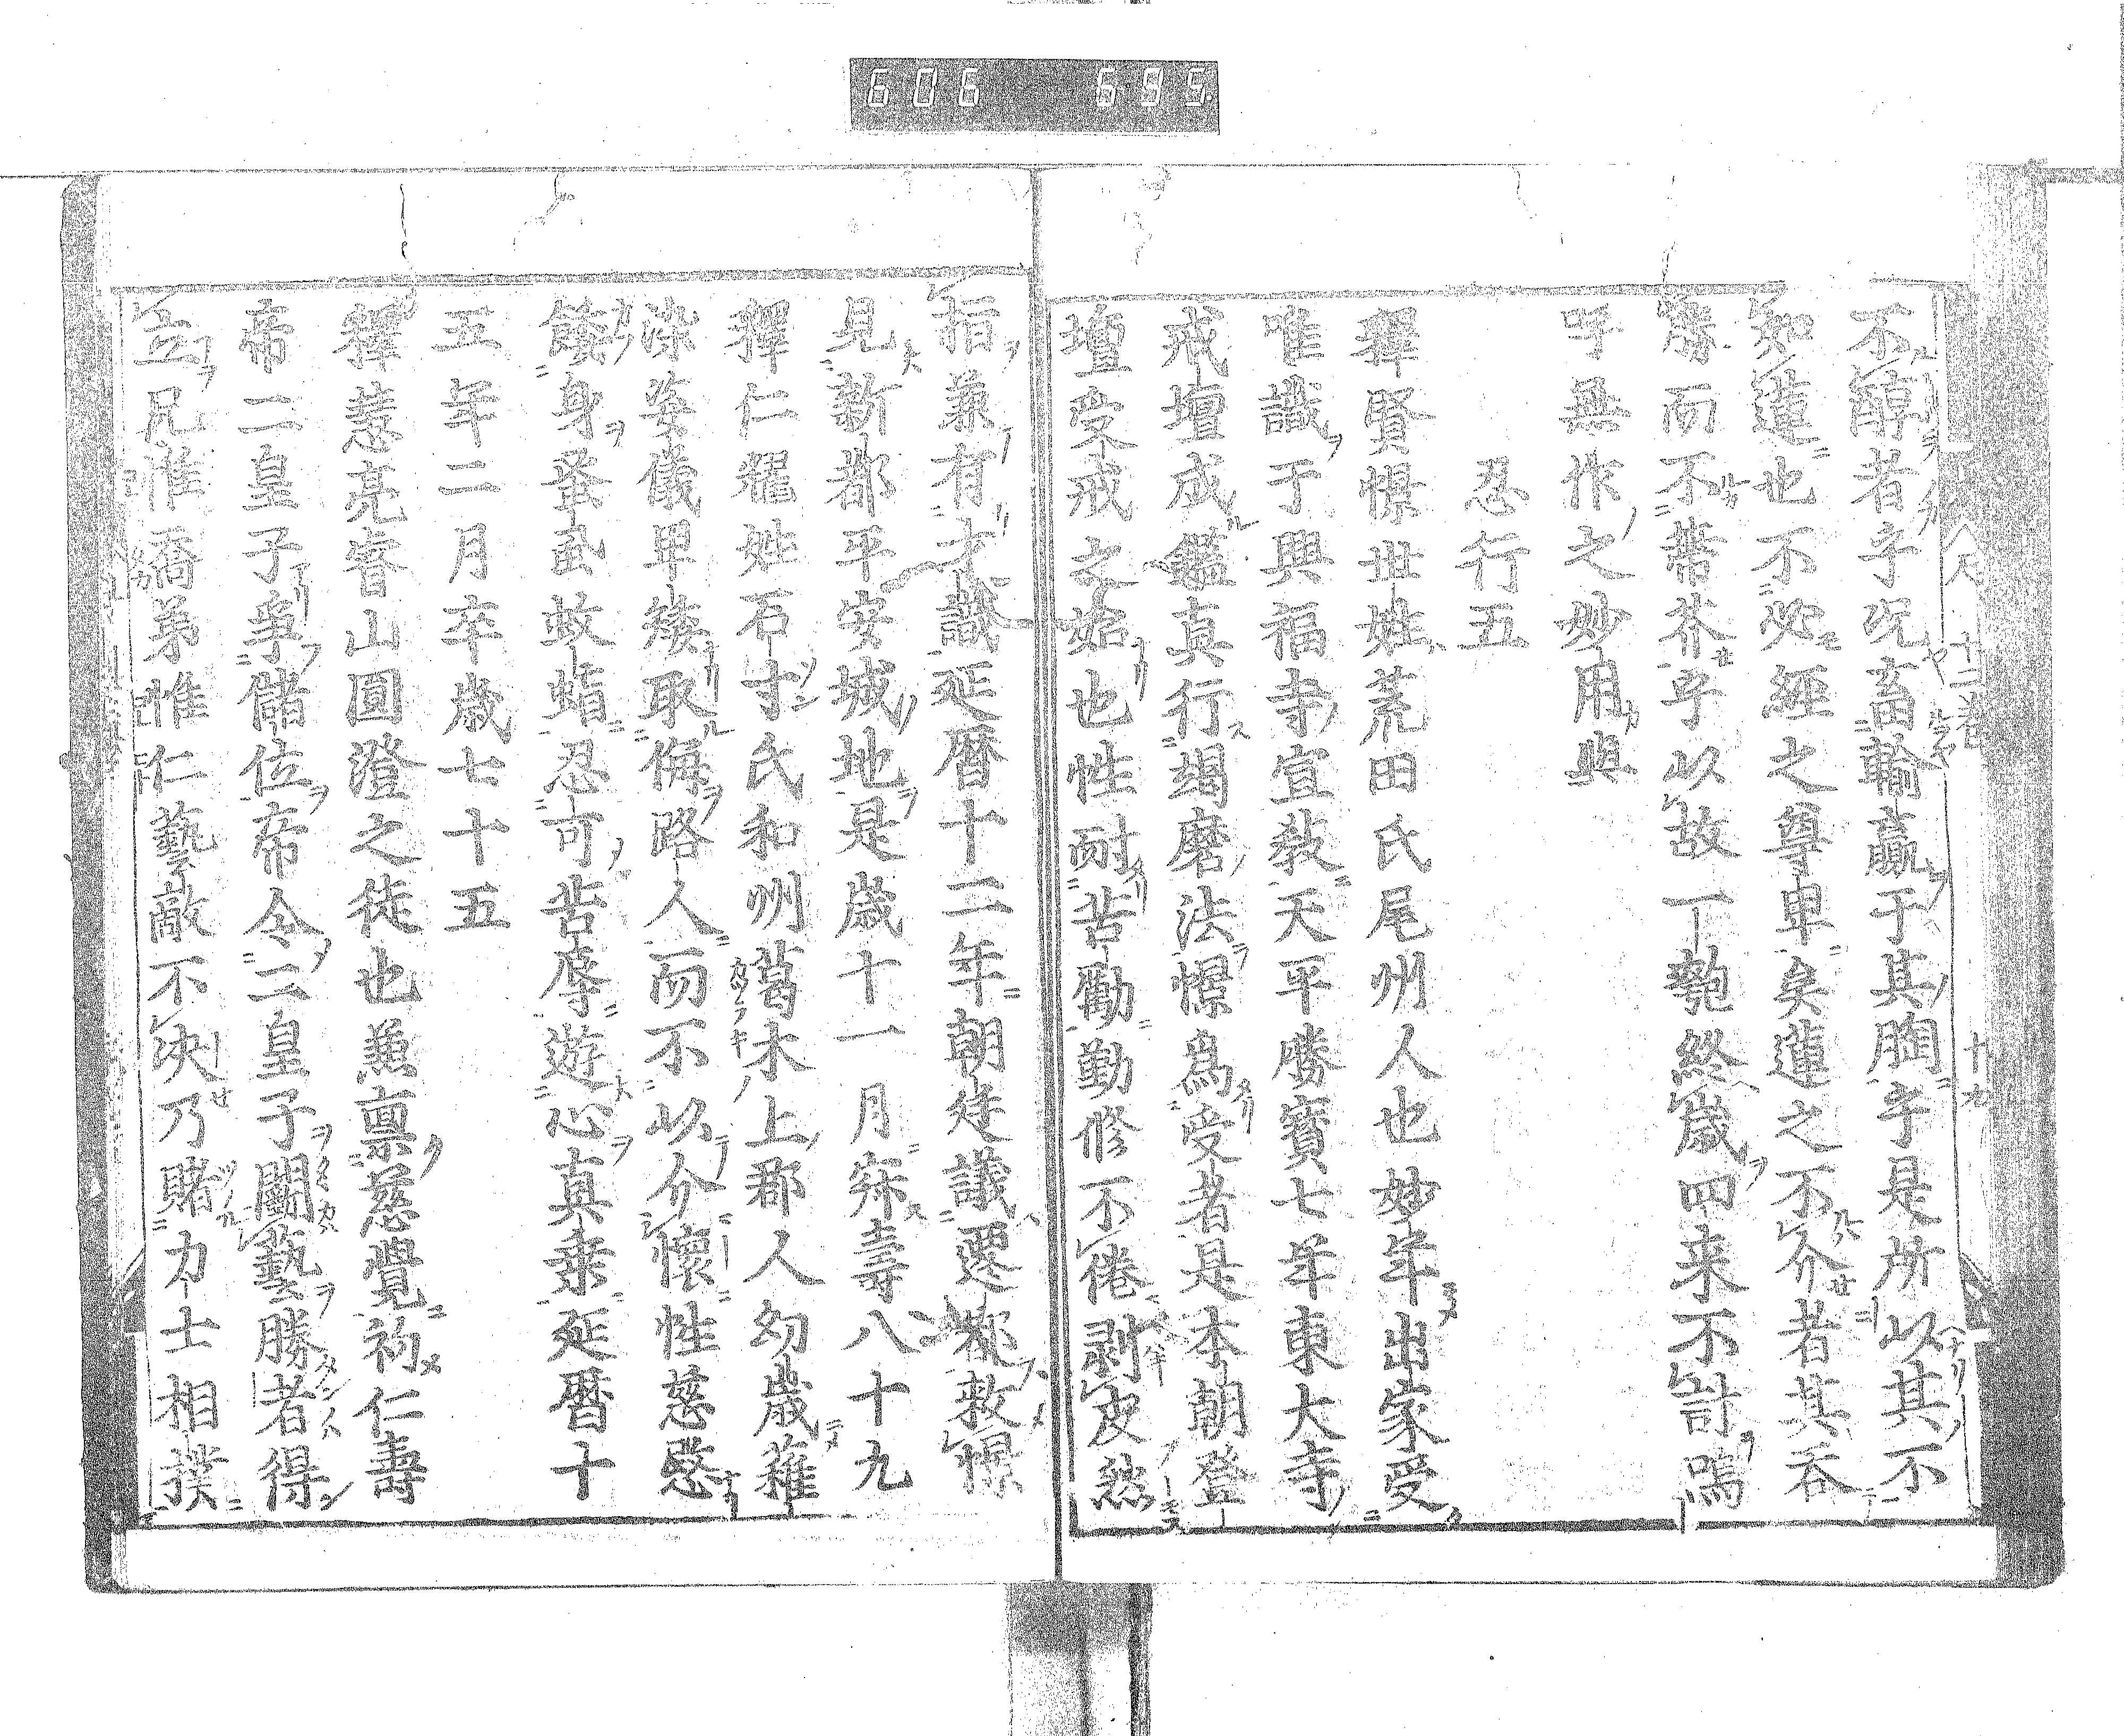 606 695
十二巻
十九
不醇者乎况畜輸贏于其胸乎是所以其不
如蓮也不必經之尊卑矣蓮之不介者其吞
勝而不蔕芥乎以故一瓢終歳四来不計嗚
呼無作之妙用與
忍行五
釋賢憬世姓荒田氏尾州人也妙年出家受
唯識于興福寺宣教天平勝寶七年東大寺
戒壇成鑑真行羯磨法憬爲受者是本朝登
壇受戒之始也性耐苦勵勤修不倦剥皮然
指兼有才識延暦十二年朝廷議遷都敕憬
見新都平安城地是歳十一月寂壽八十九
釋仁耀姓石寸氏和州葛木上郡人幼歳蘺
染姿儀卑矮取侮路人而不以介懷性慈愍
餧身蚤虱蚊蝱忍可苦辱遊心真乗延暦十
五年二月卒歳七十五
釋慧亮睿山圓澄之徒也兼禀慈覺初仁壽
帝二皇子爭儲位帝令二皇子鬪藝勝者得
立兄惟喬弟惟仁藝敵不决乃賭力士相撲